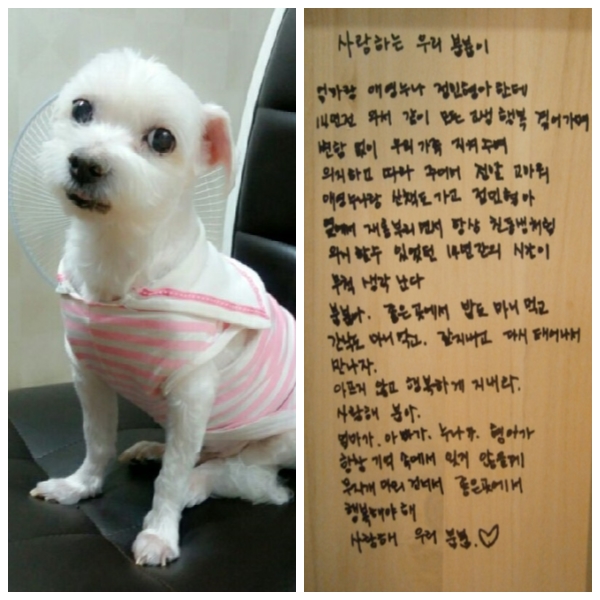 사랑하는 우리 붐붐이
엄마랑 애영누나 정민형아 한테
14년전 와서 같이 모든 고생 행복 겪어가며
변함 없이 우리 가족 지켜주며
의지하고 따라 주어서 정말 고마워
애영누나랑 산책도 가고 정민형아
옆에서 재롱부리면서 항상 친동생처럼
의지 할수 있었던 14년간의 시간이
무척 생각 난다
붐붐아. 좋은곳에서 밥도 마니 먹고
간식도 마니먹고. 잘지내고 다시 태어나서
만나자.
아프지 않고 행복하게 지내라.
사랑해 붐아.
엄마가. 아빠가. 누나가. 형아가
항상 기억 속에서 잊지 않을게
무지개 다리 건너서 좋은곳에서
행복해야 해
사랑해 우리 붐붐.♡